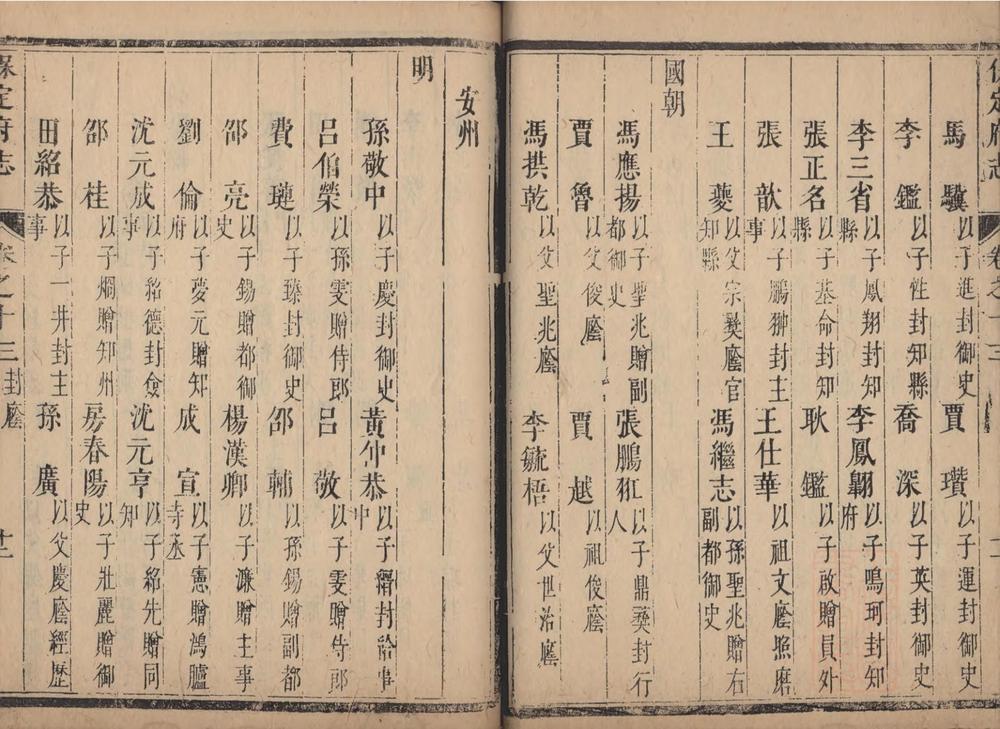 保定府志 卷之十三
馬驥 以子進封御史 賈瓚 以子運封御史
李鑑 以子性封知縣 喬深 以子英封御史
李三省 以子鳳翔封知縣 李鳳翺 以子鳴珂封知府
張正名 以子基命封知縣 耿鑑 以子啟贈員外
張歆 以子鵬翀封主事 王仕華 以祖文廕照磨
王夔 以父宗彝廕官知縣 馮繼志 以孫聖兆贈右副都御史
國朝
馮應揚 以子聖兆贈副都御史 張鵬 以子鼎彝封行人
賈魯 以父俊廕 賈越 以祖俊廕
馮拱乾 以父聖兆廕 李毓梧 以父世洽廕
安州
明
孫敬中 以子慶封御史 黃仲恭 以子濟封給事中
呂伯榮 以孫雯贈侍郎 呂敬 以子雯贈侍郎
費璉 以子瑧封御史 邵輔 以孫錫贈副都
邵亮 以子錫贈都御史 楊漢卿 以子濂贈主事
劉倫 以子夢元贈知府 成宣 以子憲贈鴻臚寺丞
沈元成 以子紹德封僉事 沈元亨 以子紹先贈同知
邵桂 以子烱贈知州 房春陽 以子壯麗贈御史
田紹恭 以子一井封主事 孫廣 以父慶廕經歷
保定府志 卷之十三 封廕 廿一